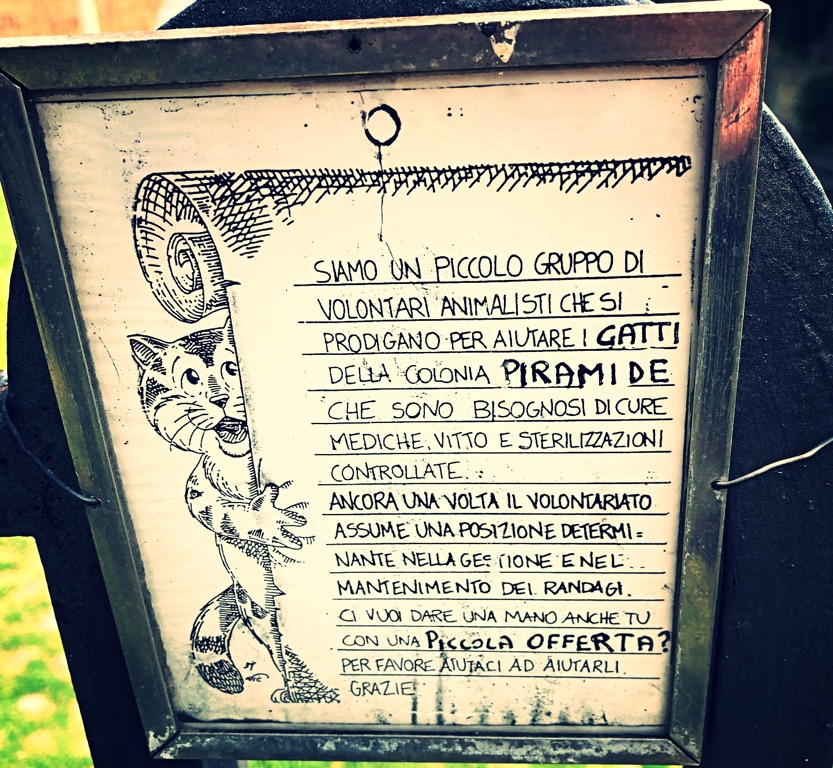 SIAMO UN PICCOLO GRUPPO DI
VOLONTARI ANIMALISTI CHE SI
PRODIGANO PER AIUTARE I GATTI
DELLA COLONIA PIRAMIDE
CHE SONO BISOGNOSI DI CURE
MEDICHE, VITTO E STERILIZZAZIONI
CONTROLLATE.
ANCORA UNA VOLTA IL VOLONTARIATO
ASSUME UNA POSIZIONE DETERMI=
NANTE NELLA GESTIONE E NEL
MANTENIMENTO DEI RANDAGI.
CI VUOI DARE UNA MANO ANCHE TU
CON UNA PICCOLA OFFERTA?
PER FAVORE AIUTACI AD AIUTARLI.
GRAZIE